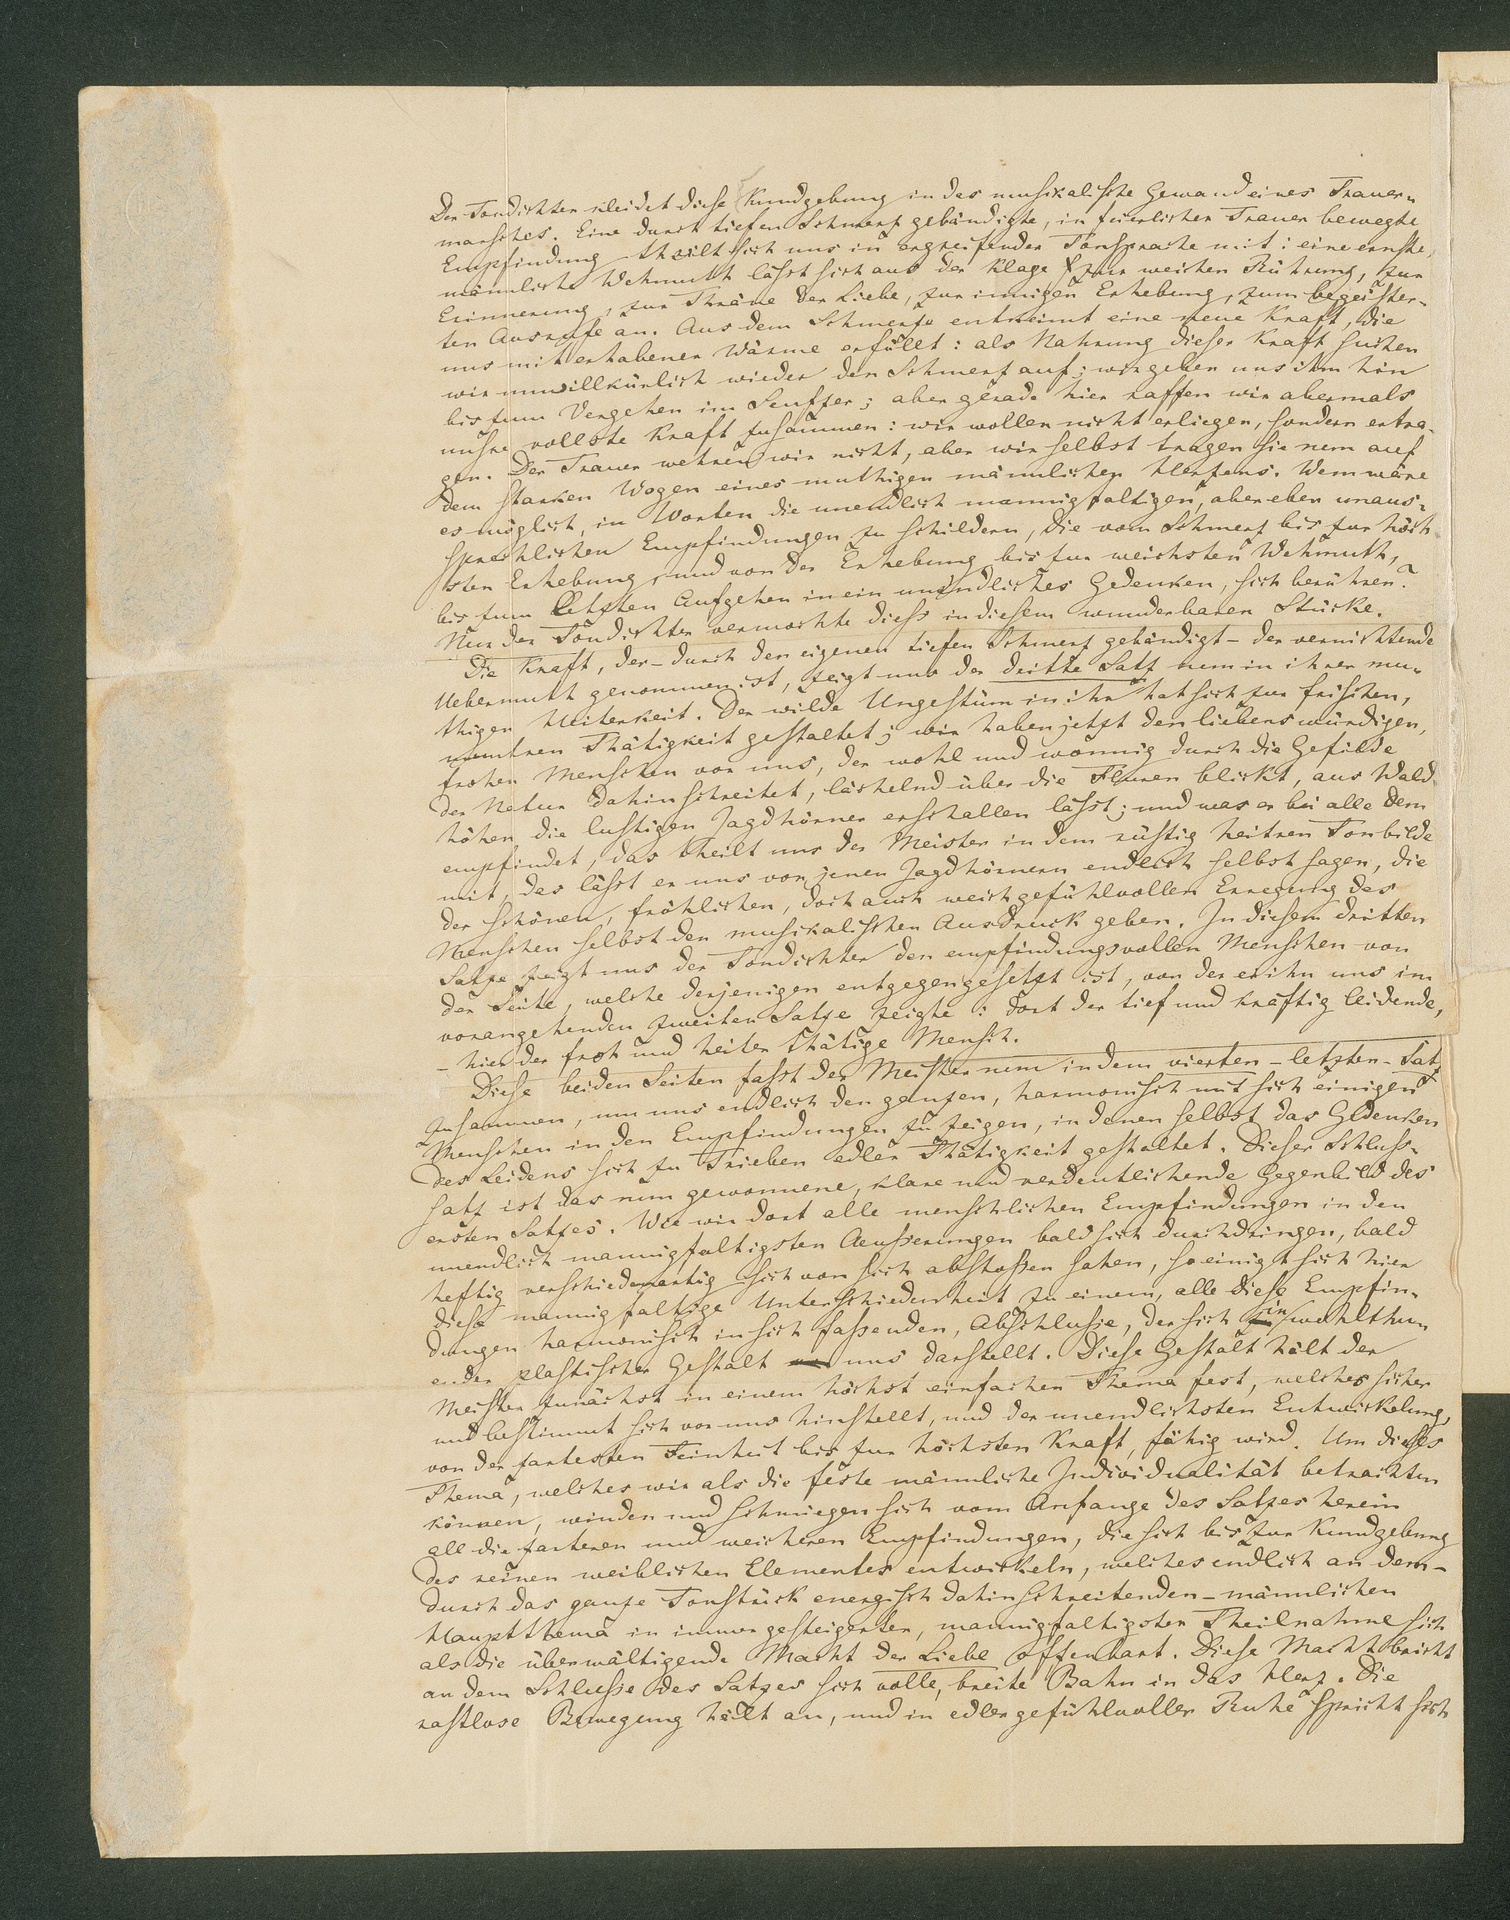 Der Tondichter kleidet diese Kundgebung in das musikalische Gewand eines Trauer-
marsches. Eine durch tiefen Schmerz gebändigte, in feierlicher Trauer bewegte
Empfindung theilt sich uns in ergreifender Tonsprache mit: eine ernste,
männliche Wehmuth lässt sich aus der Klage zur weichen Rührung, zur
Erinnerung, zur Thräne der Liebe, zur innigen Erhebung, zum begeister-
ten Ausrufe an. Aus dem Schmerze entkeimt eine neue Kraft, die
uns mit erhabener Wärme erfüllt: als Nahrung dieser Kraft suchen
wir unwillkürlich wieder den Schmerz auf; wir geben uns ihm hin
bis zum Vergehen im Seufzer; aber gerade hier raffen wir abermals
unsre vollste Kraft zusammen: wir wollen nicht erliegen, sondern ertra-
gen. Der Trauer wehren wir nicht, aber wir selbst tragen sie nun auf
dem starken Wogen eines muthigen männlichen Herzens. Wem wäre
es möglich, in Worten die unendlich mannigfaltigen, aber eben unaus-
sprechlichen Empfindungen zu schildern, die vom Schmerz bis zur höch
sten Erhebung, und von der Erhebung bis zur weichsten Wehmuth,
bis zum letzten Aufgehen in ein unendliches Gedenken, sich berühren?
Nur der Tondichter vermochte diess in diesem wunderbaren Stücke.
Die Kraft, der – durch den eigenen tiefen Schmerz gebändigt – der vernichtende
Uebermuth genommen ist, zeigt uns der dritte Satz nun in ihrer mu-
thigen Heiterkeit. Der wilde Ungestüm in ihr hat sich zur frischen,
muntren Thätigkeit gestaltet; wir haben jetzt den liebenswürdigen,
frohen Menschen vor uns, der wohl und wonnig durch die Gefilde
der Natur dahinschreitet, lächelnd über die Fluren blickt, aus Wald
höhen die lustigen Jagdhörner erschallen lässt; und was er bei alle dem
empfindet, das theilt uns der Meister in dem rüstig heitren Tonbilde
mit, das lässt er uns von jenen Jagdhörnern endlich selbst sagen, die
der schönen, fröhlichen, doch auch weichgefühlvollen Erregung des
Menschen selbst den musikalischen Ausdruck geben. In diesem dritten
Satze zeigt uns der Tondichter den empfindungsvollen Menschen von
der Seite, welche derjenigen entgegengesetzt ist, von der er ihn uns im
vorangehenden zweiten Satze zeigte: dort der tief und kräftig leidende,
– hier der froh und heiter thätige Mensch.
Diese beiden Seiten fasst der Meister nun in dem vierten – letzten – Satz
zusammen, um uns endlich den ganzen, harmonisch mit sich einigen
Menschen in den Empfindungen zu zeigen, in denen selbst das Gedenken
des Leidens sich zu Trieben edler Thätigkeit gestaltet. Dieser Schluss-
satz ist das nun gewonnene, klare und verdeutlichende Gegenbild des
ersten Satzes. Wie wir dort alle menschlichen Empfindungen in den
unendlich mannigfaltigsten Aeußerungen bald sich durchdringen, bald
heftig verschiedenartig sich von sich abstoßen sahen, so einigt sich hier
diese mannigfaltige Unterschiedenheit zu einem, alle diese Empfin-
dungen harmonisch in sich fassenden, Abschlusse, der sich in wohlthu
ender plastischer Gestalt uns darstellt. Diese Gestalt hält der
Meister zunächst in einem höchst einfachen Thema fest, welches sicher
und bestimmt sich vor uns hinstellt, und der unendlichsten Entwickelung,
von der zartesten Feinheit bis zur höchsten Kraft, fähig wird. Um dieses
Thema, welches wir als die feste männliche Individualität betrachten
können, winden und schmiegen sich vom Anfange des Satzes herein
all die zarteren und weicheren Empfindungen, die sich bis zur Kundgebung
des reinen weiblichen Elementes entwickeln, welches endlich an dem –
durch das ganze Tonstück energisch dahinschreitenden – männlichen
Hauptthema in immer gesteigerter, mannigfaltigster Theilnahme sich
als die überwältigende Macht der Liebe offenbart. Diese Macht bricht
an dem Schlusse des Satzes sich volle, breite Bahn in das Herz. Die
rastlose Bewegung hält an, und in edler gefühlvoller Ruhe spricht sich